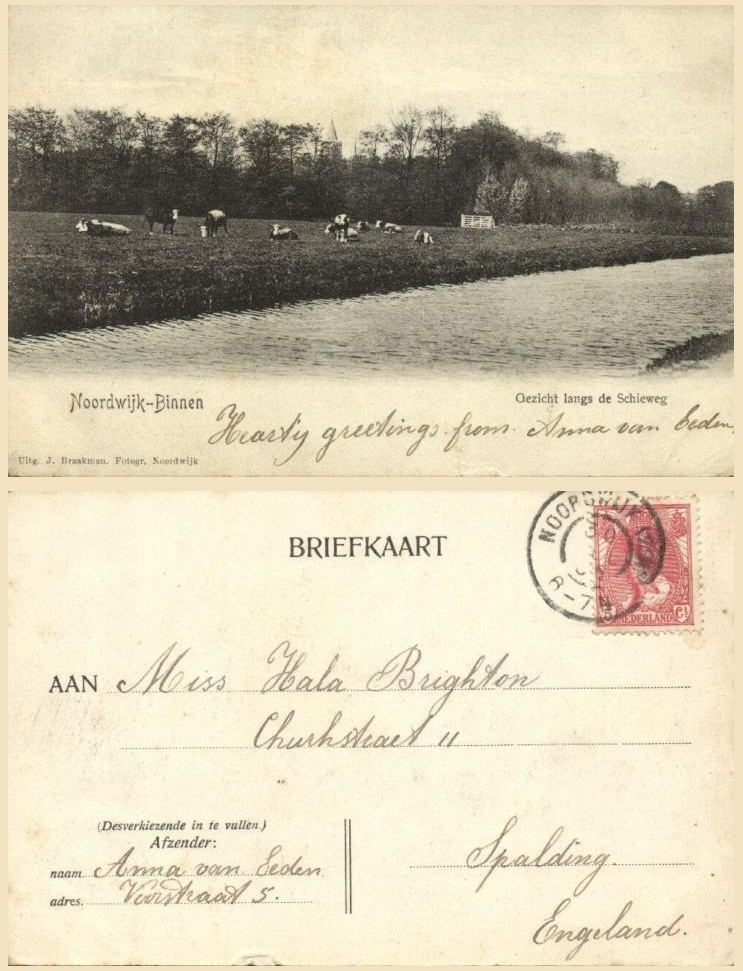 Noordwijk-Binnen
Gezicht langs de Schieweg
Hearty greetings from Anna van Eeden.
Uitg. J. Braakman. Fotogr. Noordwijk
BRIEFKAART
NOORDWIJK
6-7N
5 NEDERLAND Ct
AAN Miss Hala Brighton
Churhstraet 11
(Desverkiezende in te vullen.)
Afzender:
naam Anna van Eeden
adres. Voorstraat 5.
Spalding.
Engeland.